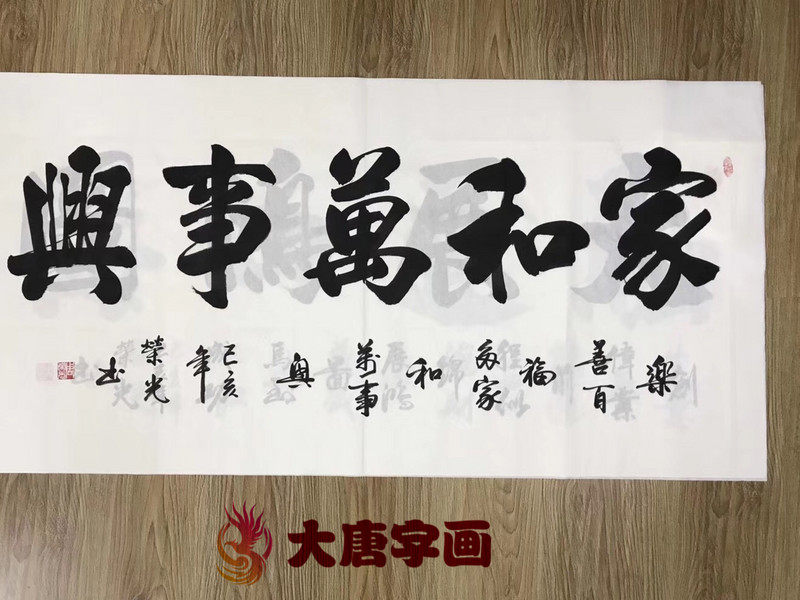 家和萬事興
樂善百福
多家和萬事興
己亥年
榮光書
大唐字画